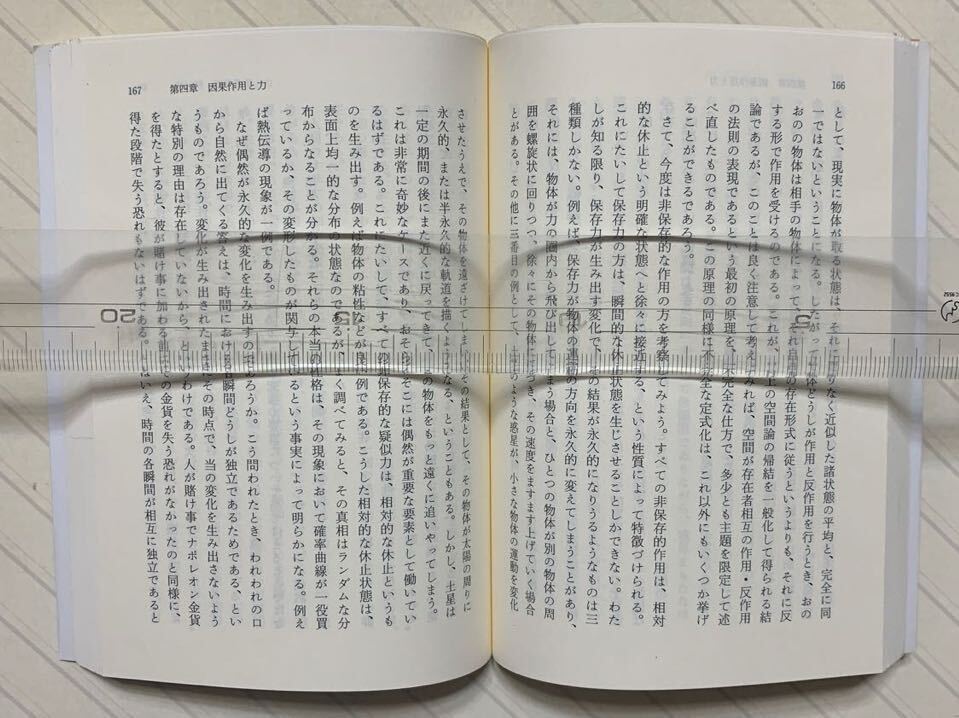 166
として、現実に物体が取る状態は、それに限りなく近似した諸状態の平均と、完全に同
一ではないということになる。したがって、物体どうしが作用と反作用を行うとき、おの
おのの物体は相手の物体によって、それ自身の存在形式に従うというよりも、それに反
する形で作用を受けるのである。これが、以上の空間論の帰結を一般化して得られる結
論であるが、このことは良く注意して考えてみれば、空間が存在者相互の作用・反作用
の法則の表現であるという最初の原理を、不完全な仕方で、多少とも主題を限定して述
べ直したものである。この原理の同様に不完全な定式化は、これ以外にもいくつか挙げ
ることができるであろう。
さて、今度は非保存的な作用の方を考察してみよう。すべての非保存的作用は、相対
的な休止という明確な状態へと徐々に接近する、という性質によって特徴づけられる。
これにたいして保存力の方は、瞬間的な休止状態を生じさせることしかできない。わた
しが知る限り、保存力が生み出す変化で、その結果が永久的になりうるようなものは三
種類しかない。例えば、保存力が物体の運動の方向を永久的に変えてしまうことがあり、
それには、物体が力の圏内から飛び出してしまう場合と、ひとつの物体が別の物体の周
囲を螺旋状に回りつつ、徐々にその物体に近づき、その速度をますます上げていく場合
とがある。その他に三番目の例として、土星のような惑星が、小さな物体の運動を変化
167 第四章 因果作用と力
させたうえで、その物体を遠ざけてしまい、その結果として、その物体が太陽の周りに
永久的、または半永久的な軌道を描くようになる、ということもある。しかし、土星は
一定の期間の後にまた近くに戻ってきて、この物体をもっと遠くに追いやってしまう。
これは非常に奇妙なケースであり、おそらくそこには偶然が重要な要素として働いてい
るはずである。これにたいして、すべての非保存的な疑似力は、相対的な休止というも
のを生み出す。例えば物体の粘性などが良い例である。こうした相対的な休止状態は、
表面上均一的な分布の状態なのであるが、よく調べてみると、その真相はランダムな分
布からなることが分かる。それらの本当の性格は、その現象において確率曲線が一役買
っているか、その変形したものが関与しているという事実によって明らかになる。例え
ば熱伝導の現象が一例である。
なぜ偶然が永久的な変化を生み出すのであろうか。こう問われたとき、われわれの口
から自然に出てくる答えは、時間における各瞬間どうしが独立であるためである、とい
うものであろう。変化が生み出されたまさにその時点で、当の変化を生み出さないよう
な特別の理由は存在していないから、というわけである。人が賭け事でナポレオン金貨
を得たとすると、彼が賭け事に加わる前にその金貨を失う恐れがなかったのと同様に、
得た段階で失う恐れもないはずである。とはいえ、時間の各瞬間が相互に独立であると
20
15
5